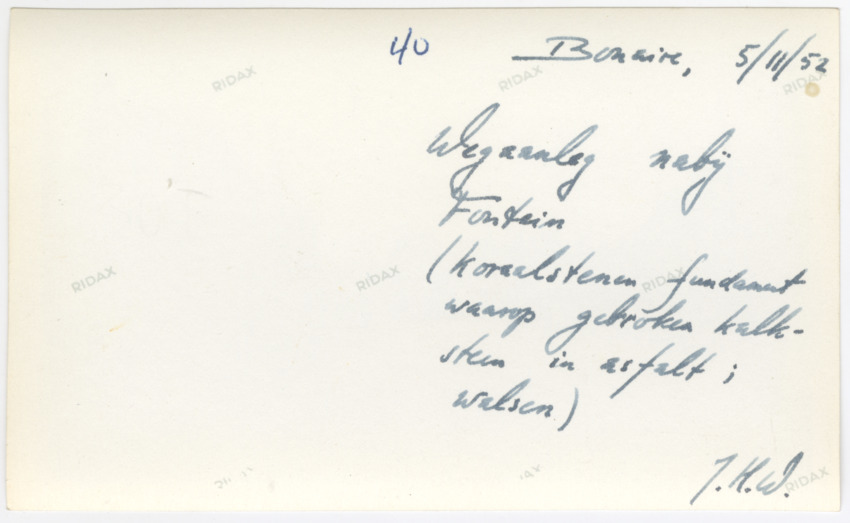 40
Bonaire, 5/11/52
Wegaanleg nabij
Fontein
(Koraalstenen fundament
waarop gebroken kalk-
steen in asfalt;
walsen)
J.H.W.
RIDAX RIDAX RIDAX
RIDAX RIDAX RIDAX
RIDAX